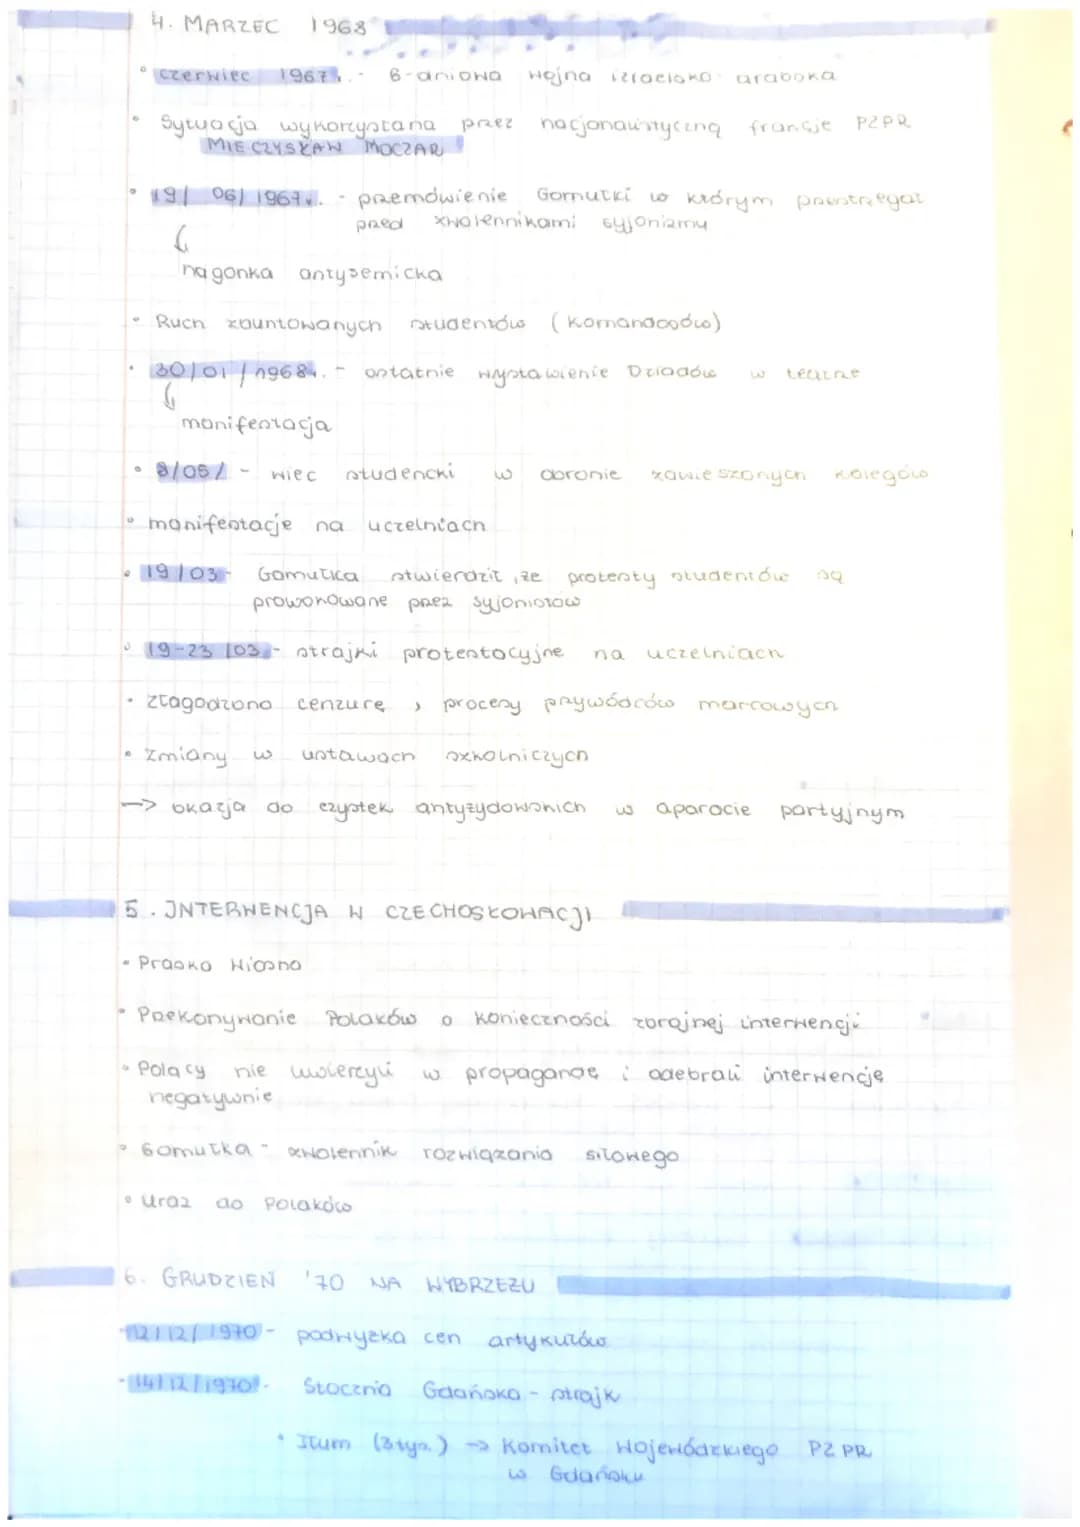 4. MARZEC 1968
czerwiec 1967r. - 6-dniowa wojna izraelsko arabska
Sytuacja wykorzystana przez nacjonalistyczną frakcję PZPR
MIECZYSŁAW MOCZAR
19/ 06/ 1967r. - przemówienie Gomułki w którym przestrzegał
przed zwolennikami syjonizmu
nagonka antysemicka
Ruch zbuntowanych studentów (Komandosów)
30/01/1968r. - ostatnie wystawienie Dziadów w teatrze
manifestacja
8/03/ - wiec studencki w obronie zawieszonych kolegów
manifestacje na uczelniach
19/03 - Gomułka stwierdził, że protesty studentów są
prowokowane przez syjonistów
19-23/03 - strajki protestacyjne na uczelniach
złagodzono cenzurę, procesy przywódców marcowych
Zmiany w ustawach szkolniczych
→ okazja do czystek antyżydowskich w aparacie partyjnym
5. INTERWENCJA W CZECHOSŁOWACJI
Praska Wiosna
Przekonywanie Polaków o konieczności zbrojnej interwencji
Polacy nie uwierzyli w propagandę i odebrali interwencję
negatywnie
Gomułka - zwolennik rozwiązania siłowego
Uraz do Polaków
6. GRUDZIEŃ '70 NA WYBRZEŻU
12/12/1970 - podwyżka cen artykułów
14/12/1970 - Stocznia Gdańska - strajk
Tłum (3 tys.) → Komitet Wojewódzkiego PZPR
w Gdańsku